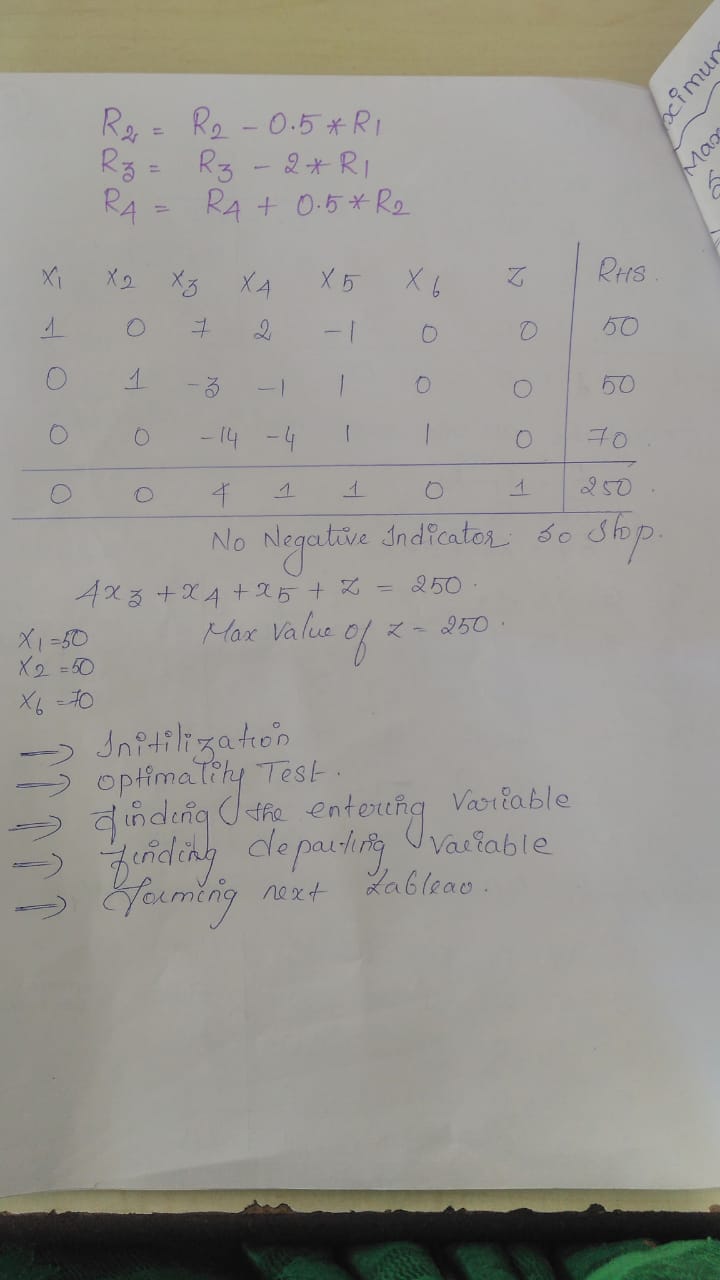 R2 = R2 - 0.5 * R1
R3 = R3 - 2 * R1
R4 = R4 + 0.5 * R2
X1 X2 X3 X4 X5 X6 Z RHS.
1 0 7 2 -1 0 0 50
0 1 -3 -1 1 0 0 50
0 0 -14 -4 1 1 0 70
0 0 4 1 1 0 1 250.
No Negative Indicator so stop.
4x3 + x4 + x5 + z = 250.
X1 = 50 Max Value of z = 250.
X2 = 50
X6 = 70
→ Initilization
→ optimality Test.
→ finding the entering Variable
→ finding departing Variable
→ forming next tableao.
ximum
Max
5